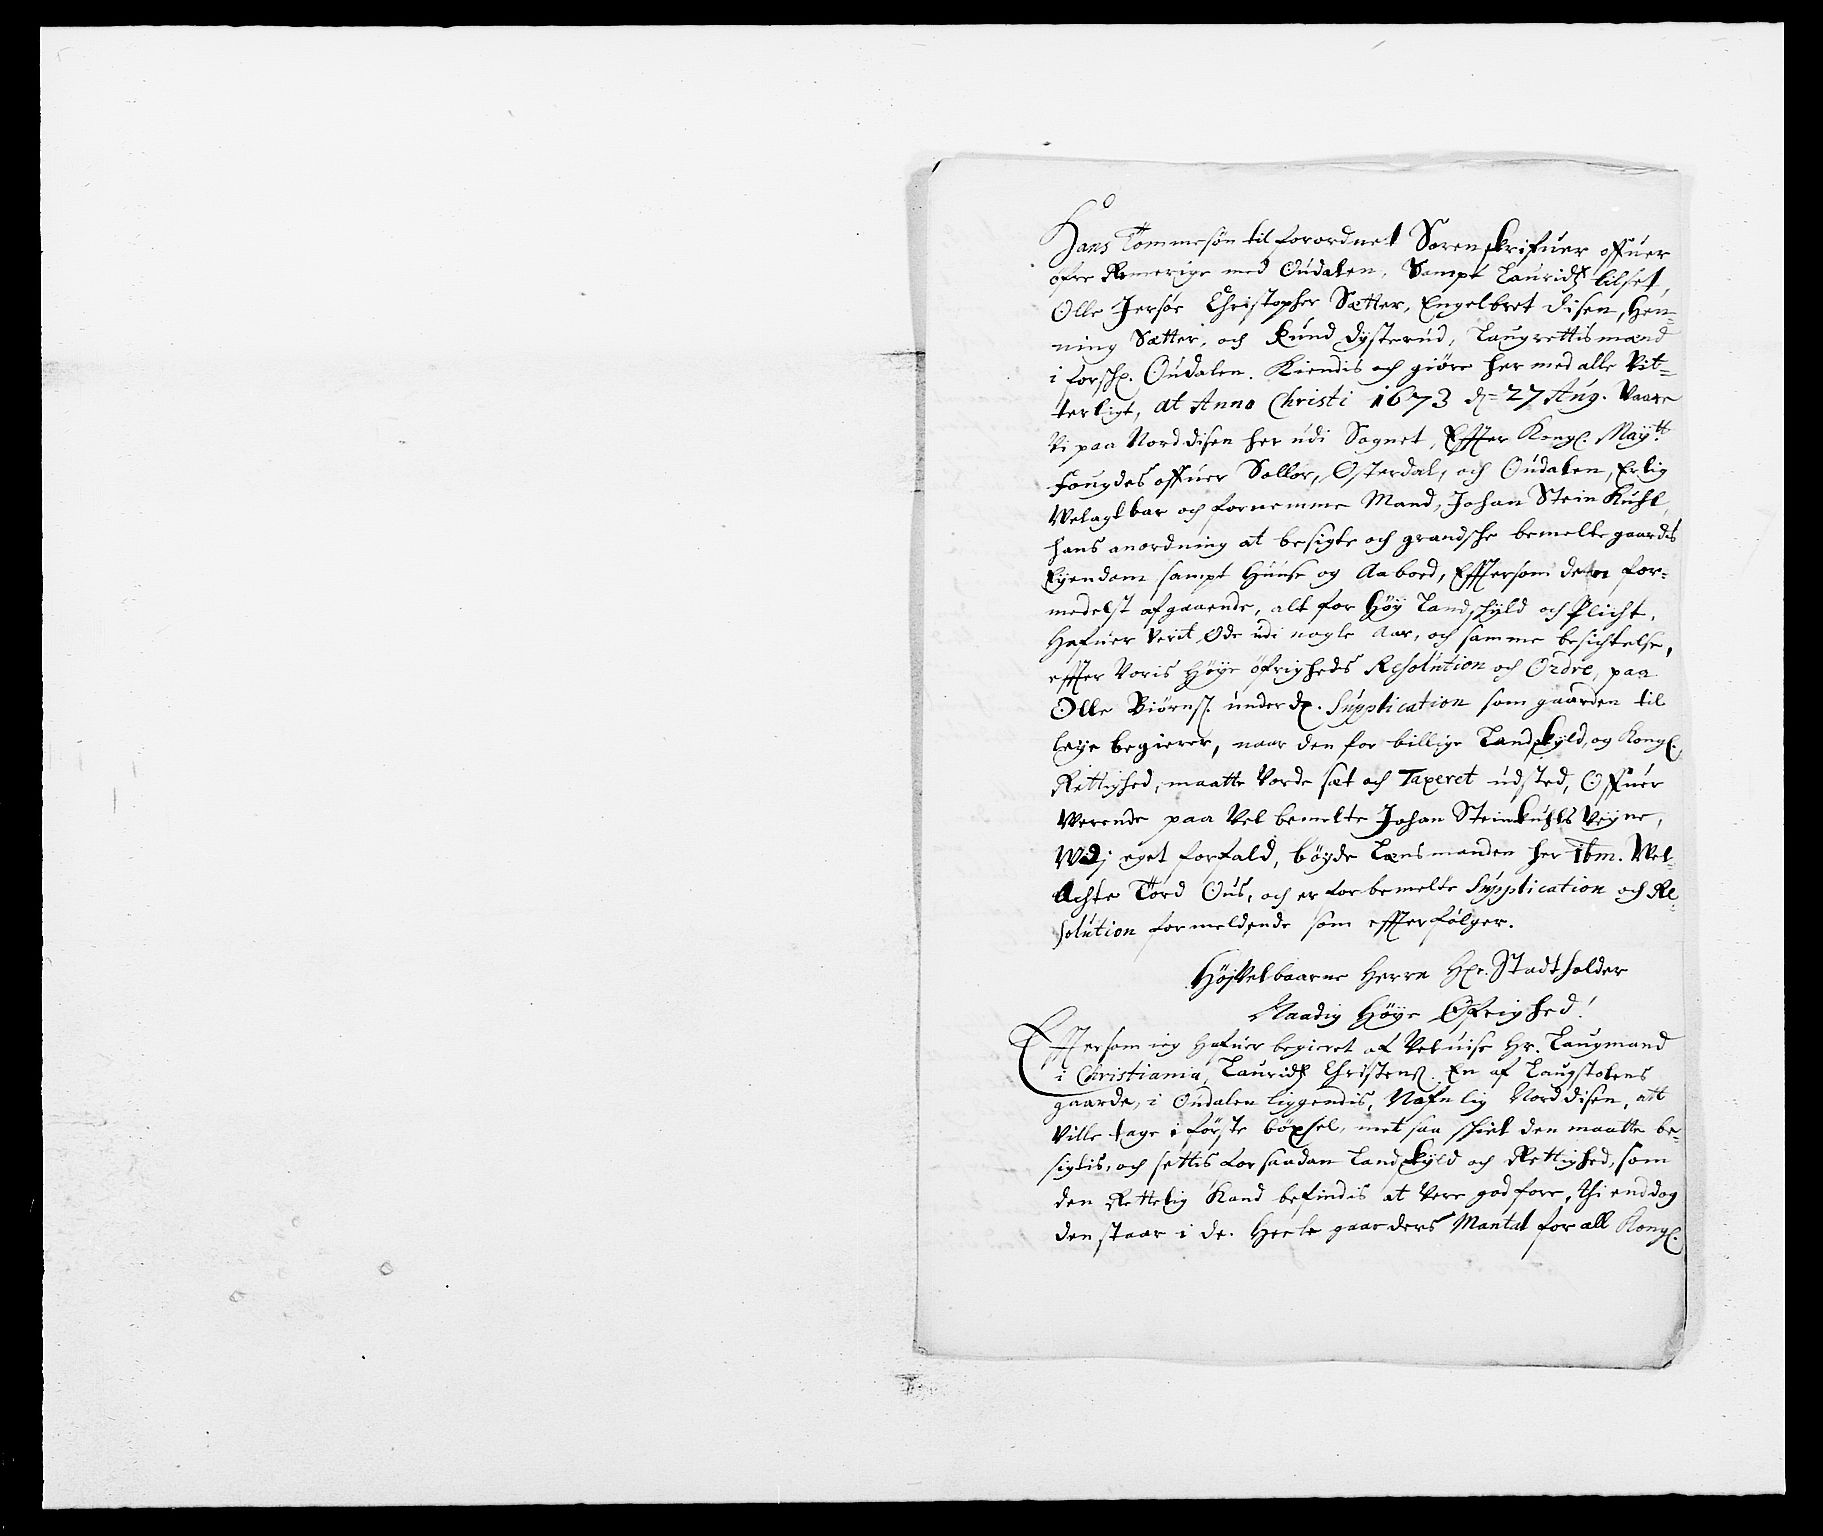 Hans Tommesøn til forordnet Sorenskrifuer offuer
øfre Romerige med Oudalen, Sampt Lauridtz lilset,
Olle Jersøe Christopher Sætter, Engelbret disen, Hen=
ning Sætter, och Knud dysterud, Laugrettismænd
i forschr. Oudalen. Kiendis och giøre her med alle Vit=
terligt, at Anno Christi 1673 d= 27 Aug. Vaare
Vi paa Nord disen her udi Sognet, Effter Kongl. Maÿtt.
Fougdes offuer Sollør, Osterdal, och Oudalen, Erlig
Welagtbar och fornemme Mand, Johan Stein Kuhl,
hans anordning at besigte och grandsche bemelte gaardis
Eyendom sampt Huuse og Aaboed, Efftersom den for=
medelst afgaaende, alt for høÿ Landschyld och Plicht,
Hafuer Verit Øde udi nogle Aar, och samme besichtelse,
effter Voris Høÿe øfrigheds Resolution och Ordre, paa
Olle Biørns. under dr. Supplication som gaarden til
leye begierer, naar den for billige Landskyld, og Kongl.
Rettighed, maatte Vorde sat och Taxeret udsted, Offuer
Werende paa Vel bemelte Johan Steinkuhls Veigne,
Widj eget forfald, böyde Lænsmanden her ibm. Wel=
Achte Tord Ous, och er forbemelte Supplication och Re=
solution formeldende som effterfölger.
HøjVelbaarne Herre Hr. Stadtholder
Naadig Høÿe Øfrighed!
Efftersom ieg hafuer begieret af Veluise Hr. Laugmand
i Christiania, Lauridtz Christens. En af Laugstolens
gaarde, i Oudalen liggendis, Nafnlig Nord disen, att
Ville tage i føste böxsel, met saa schiel den maatte be=
sigtis, och settis for saadan Landskyld och Rettighed, som
den Rettelig Kand befindis at Vere god fore, thi enddog
den staar i de. Heele gaarders Mantal for all Kongl.